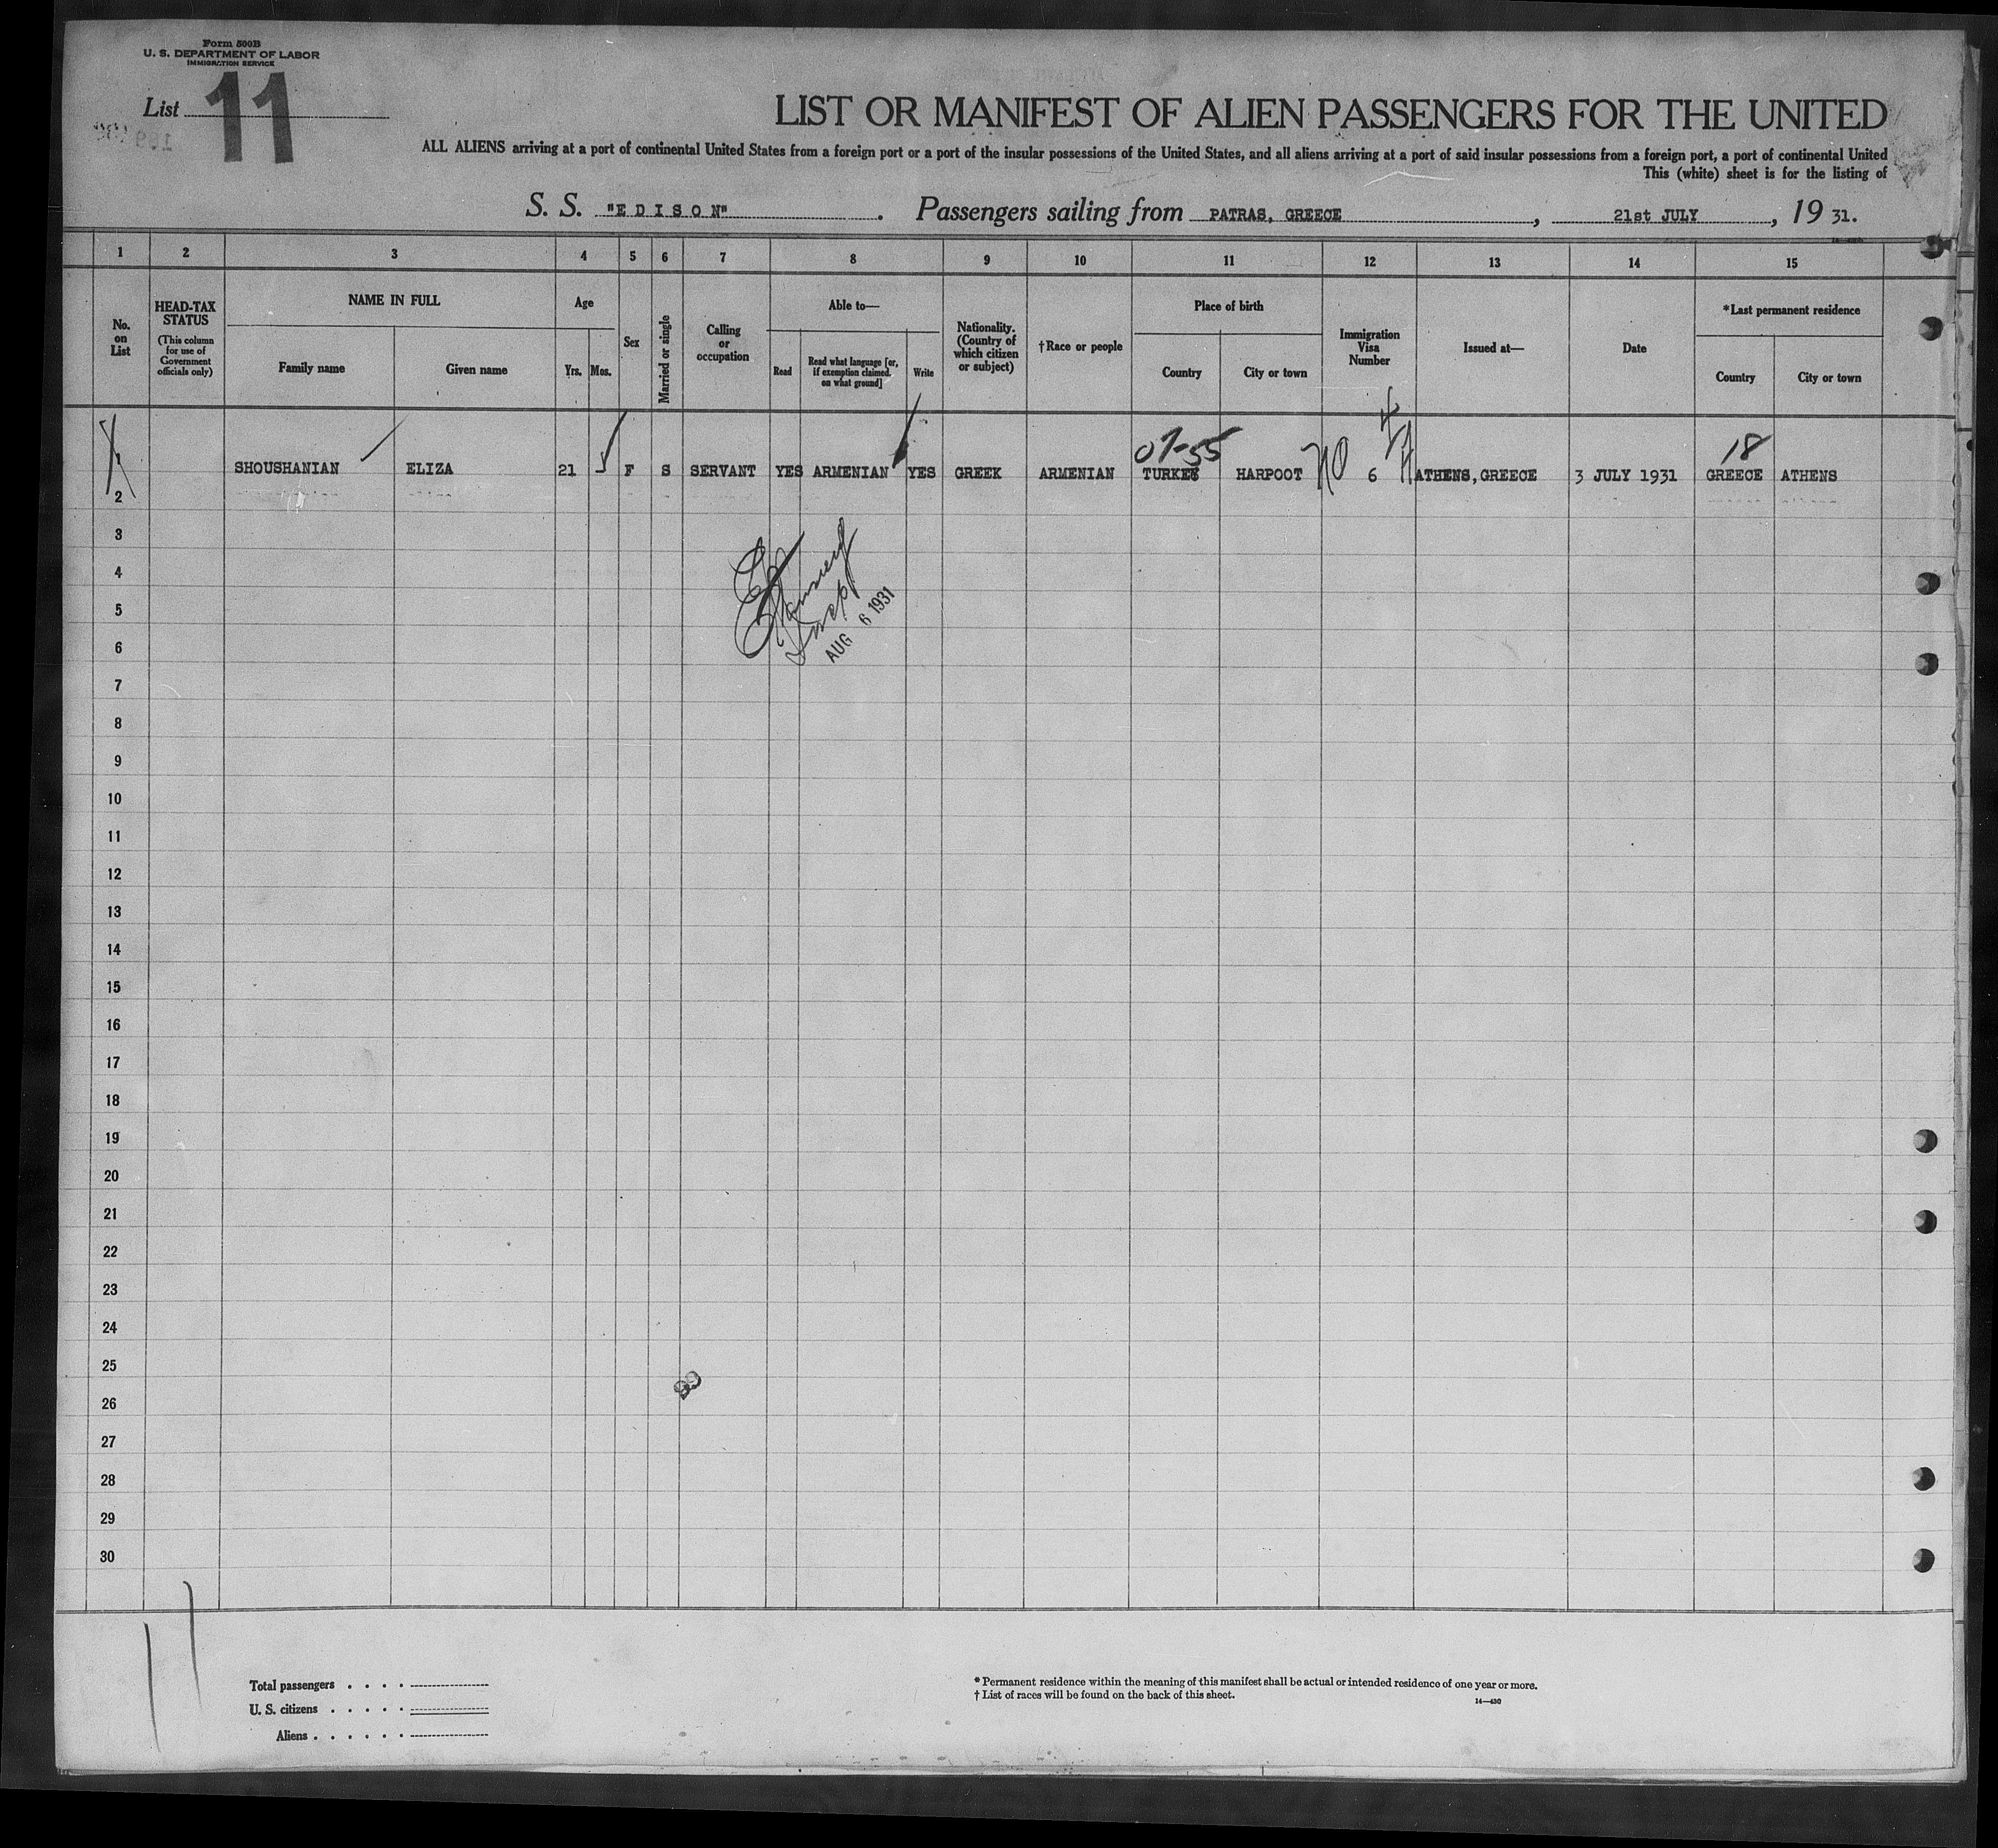 Form 500B
U. S. DEPARTMENT OF LABOR
IMMIGRATION SERVICE
List 11
LIST OR MANIFEST OF ALIEN PASSENGERS FOR THE UNITED
ALL ALIENS arriving at a port of continental United States from a foreign port or a port of the insular possessions of the United States, and all aliens arriving at a port of said insular possessions from a foreign port, a port of continental United
This (white) sheet is for the listing of
S. S. "EDISON". Passengers sailing from PATRAS, GREECE, 21st JULY, 19 31.
1 2 3 4 5 6 7 8 9 10 11 12 13 14 15
No. on List
HEAD-TAX STATUS
(This column for use of Government officials only)
NAME IN FULL
Family name
Given name
Age
Yrs. Mos.
Sex
Married or single
Calling or occupation
Able to—
Read
Read what language [or, if exemption claimed, on what ground]
Write
Nationality. (Country of which citizen or subject)
†Race or people
Place of birth
Country
City or town
Immigration Visa Number
Issued at—
Date
*Last permanent residence
Country
City or town
07-55
18
1 SHOUSHANIAN ELIZA 21 F S SERVANT YES ARMENIAN YES GREEK ARMENIAN TURKEY HARPOOT NO 6 ATHENS, GREECE 3 JULY 1931 GREECE ATHENS
2
3
4
5
AUG 6 1931
6
7
8
9
10
11
12
13
14
15
16
17
18
19
20
21
22
23
24
25
26
27
28
29
30
Total passengers . . . .
U. S. citizens . . . . .
Aliens . . . . . .
* Permanent residence within the meaning of this manifest shall be actual or intended residence of one year or more.
† List of races will be found on the back of this sheet.
14—430